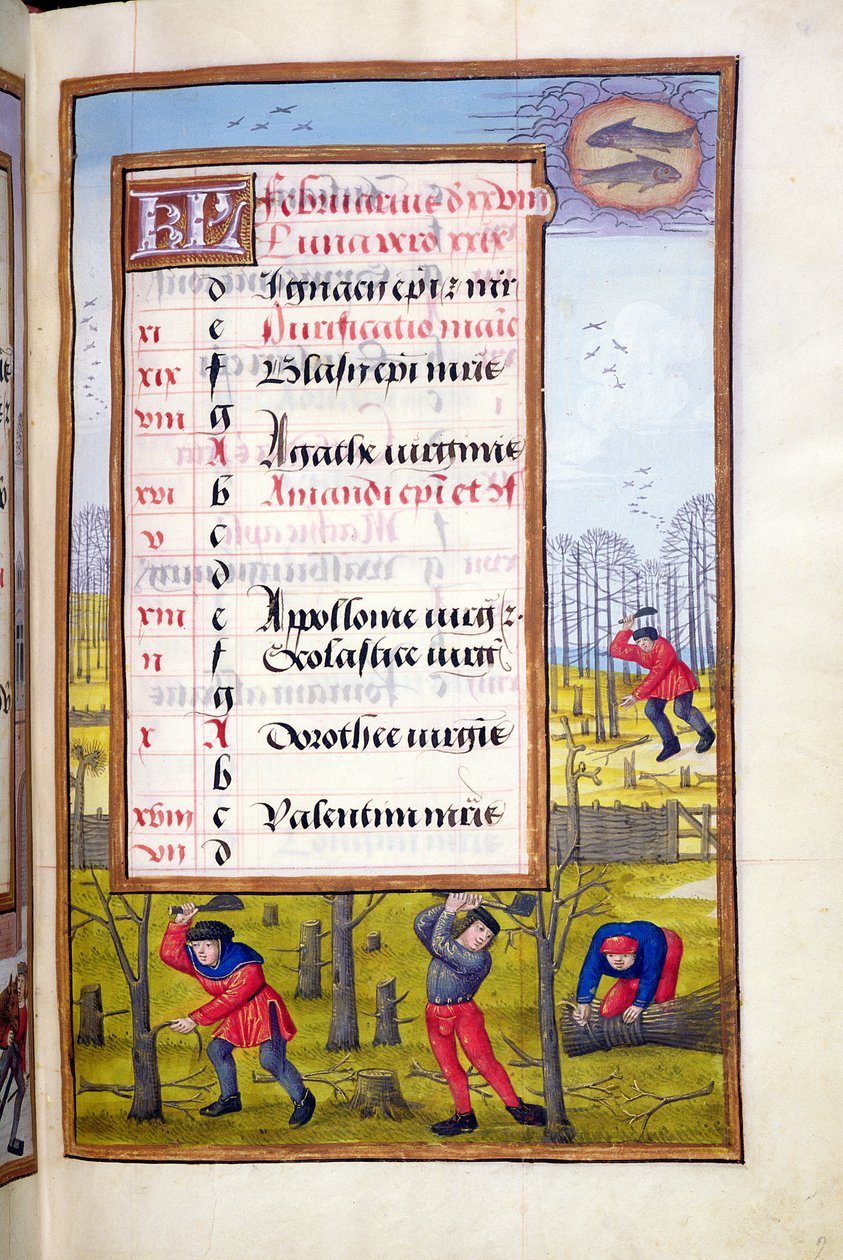 KL Februarius d xxviii
Luna vero xxix
d Ignacij epi z mr
xi e Purificatio marie
xix f Blasij epi mris
viii g
A Agathe virginis
xvi b Amandi epi et
v c
d
xiii e Appollonie virg z
ii f Scolastice virg
g
x A Dorothee virgis
b
xviii c Valentini mris
vii d